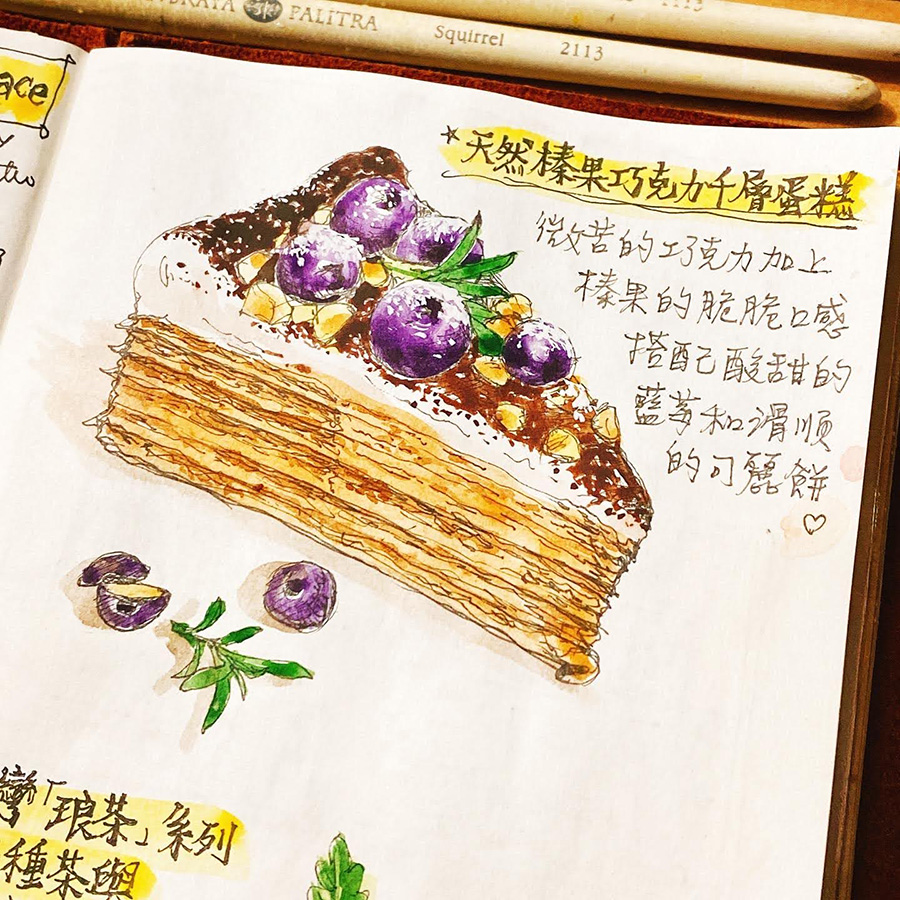 PALITRA
Squirrel 2113
2113
ace
*天然榛果巧克力千層蛋糕
微苦的巧克力加上
榛果的脆脆口感
搭配酸甜的
藍莓和滑順
的可麗餅
♡
灣「琅茶」系列
種茶與